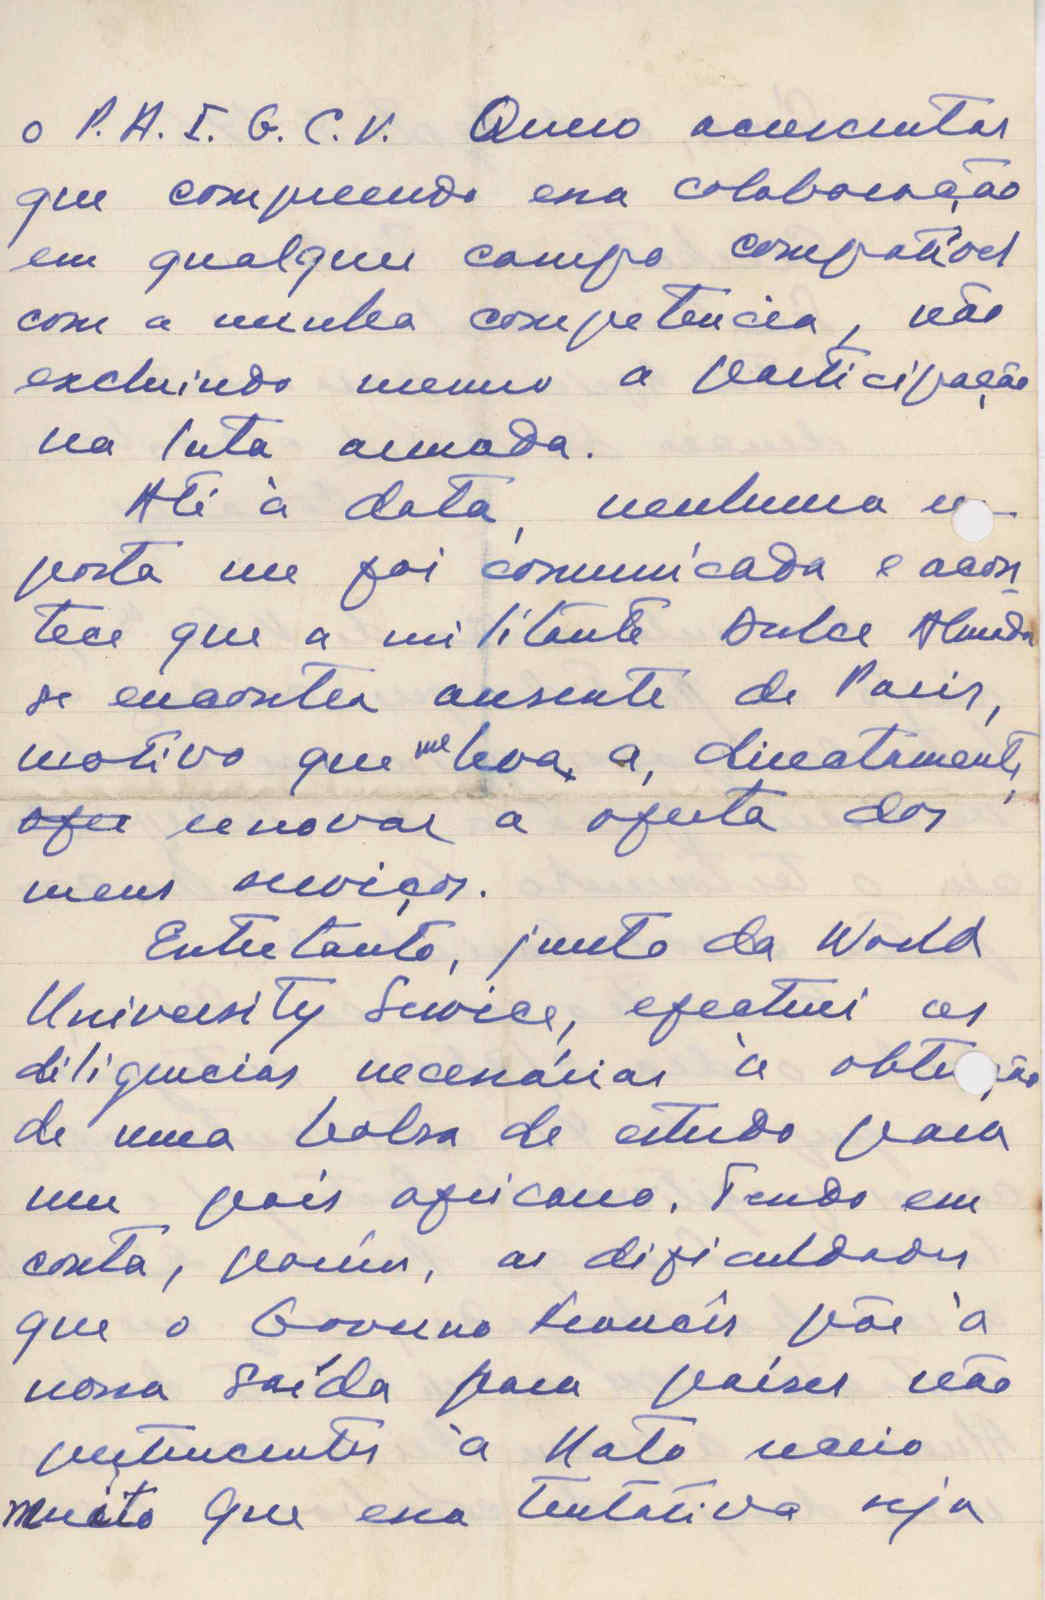 o P.A.I.G.C.V. Quero acrescentar
que compreendo essa colaboração
em qualquer campo compatível
com a minha competência, não
excluindo mesmo a participação
na luta armada.
Até à data, nenhuma res-
posta me foi comunicada e acon-
tece que a militante Dulce Almada
se encontra ausente de Paris,
motivo que me leva, a, directamente,
ofer renovar a oferta dos
meus serviços.
Entretanto, junto da World
University Service, efectuei as
diligencias necessárias à obtenção
de uma bolsa de estudo para
um país africano. Tendo em
conta, porém, as dificuldades
que o Governo francês põe à
nossa saída para países não
pertencentes à Nato receio
muito que essa tentativa seja